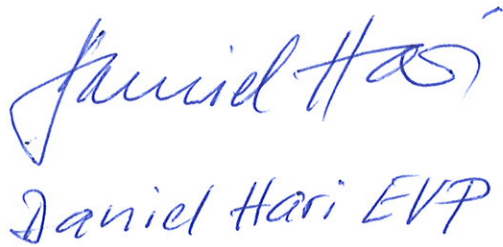 Daniel Hari
Daniel Hari EVP